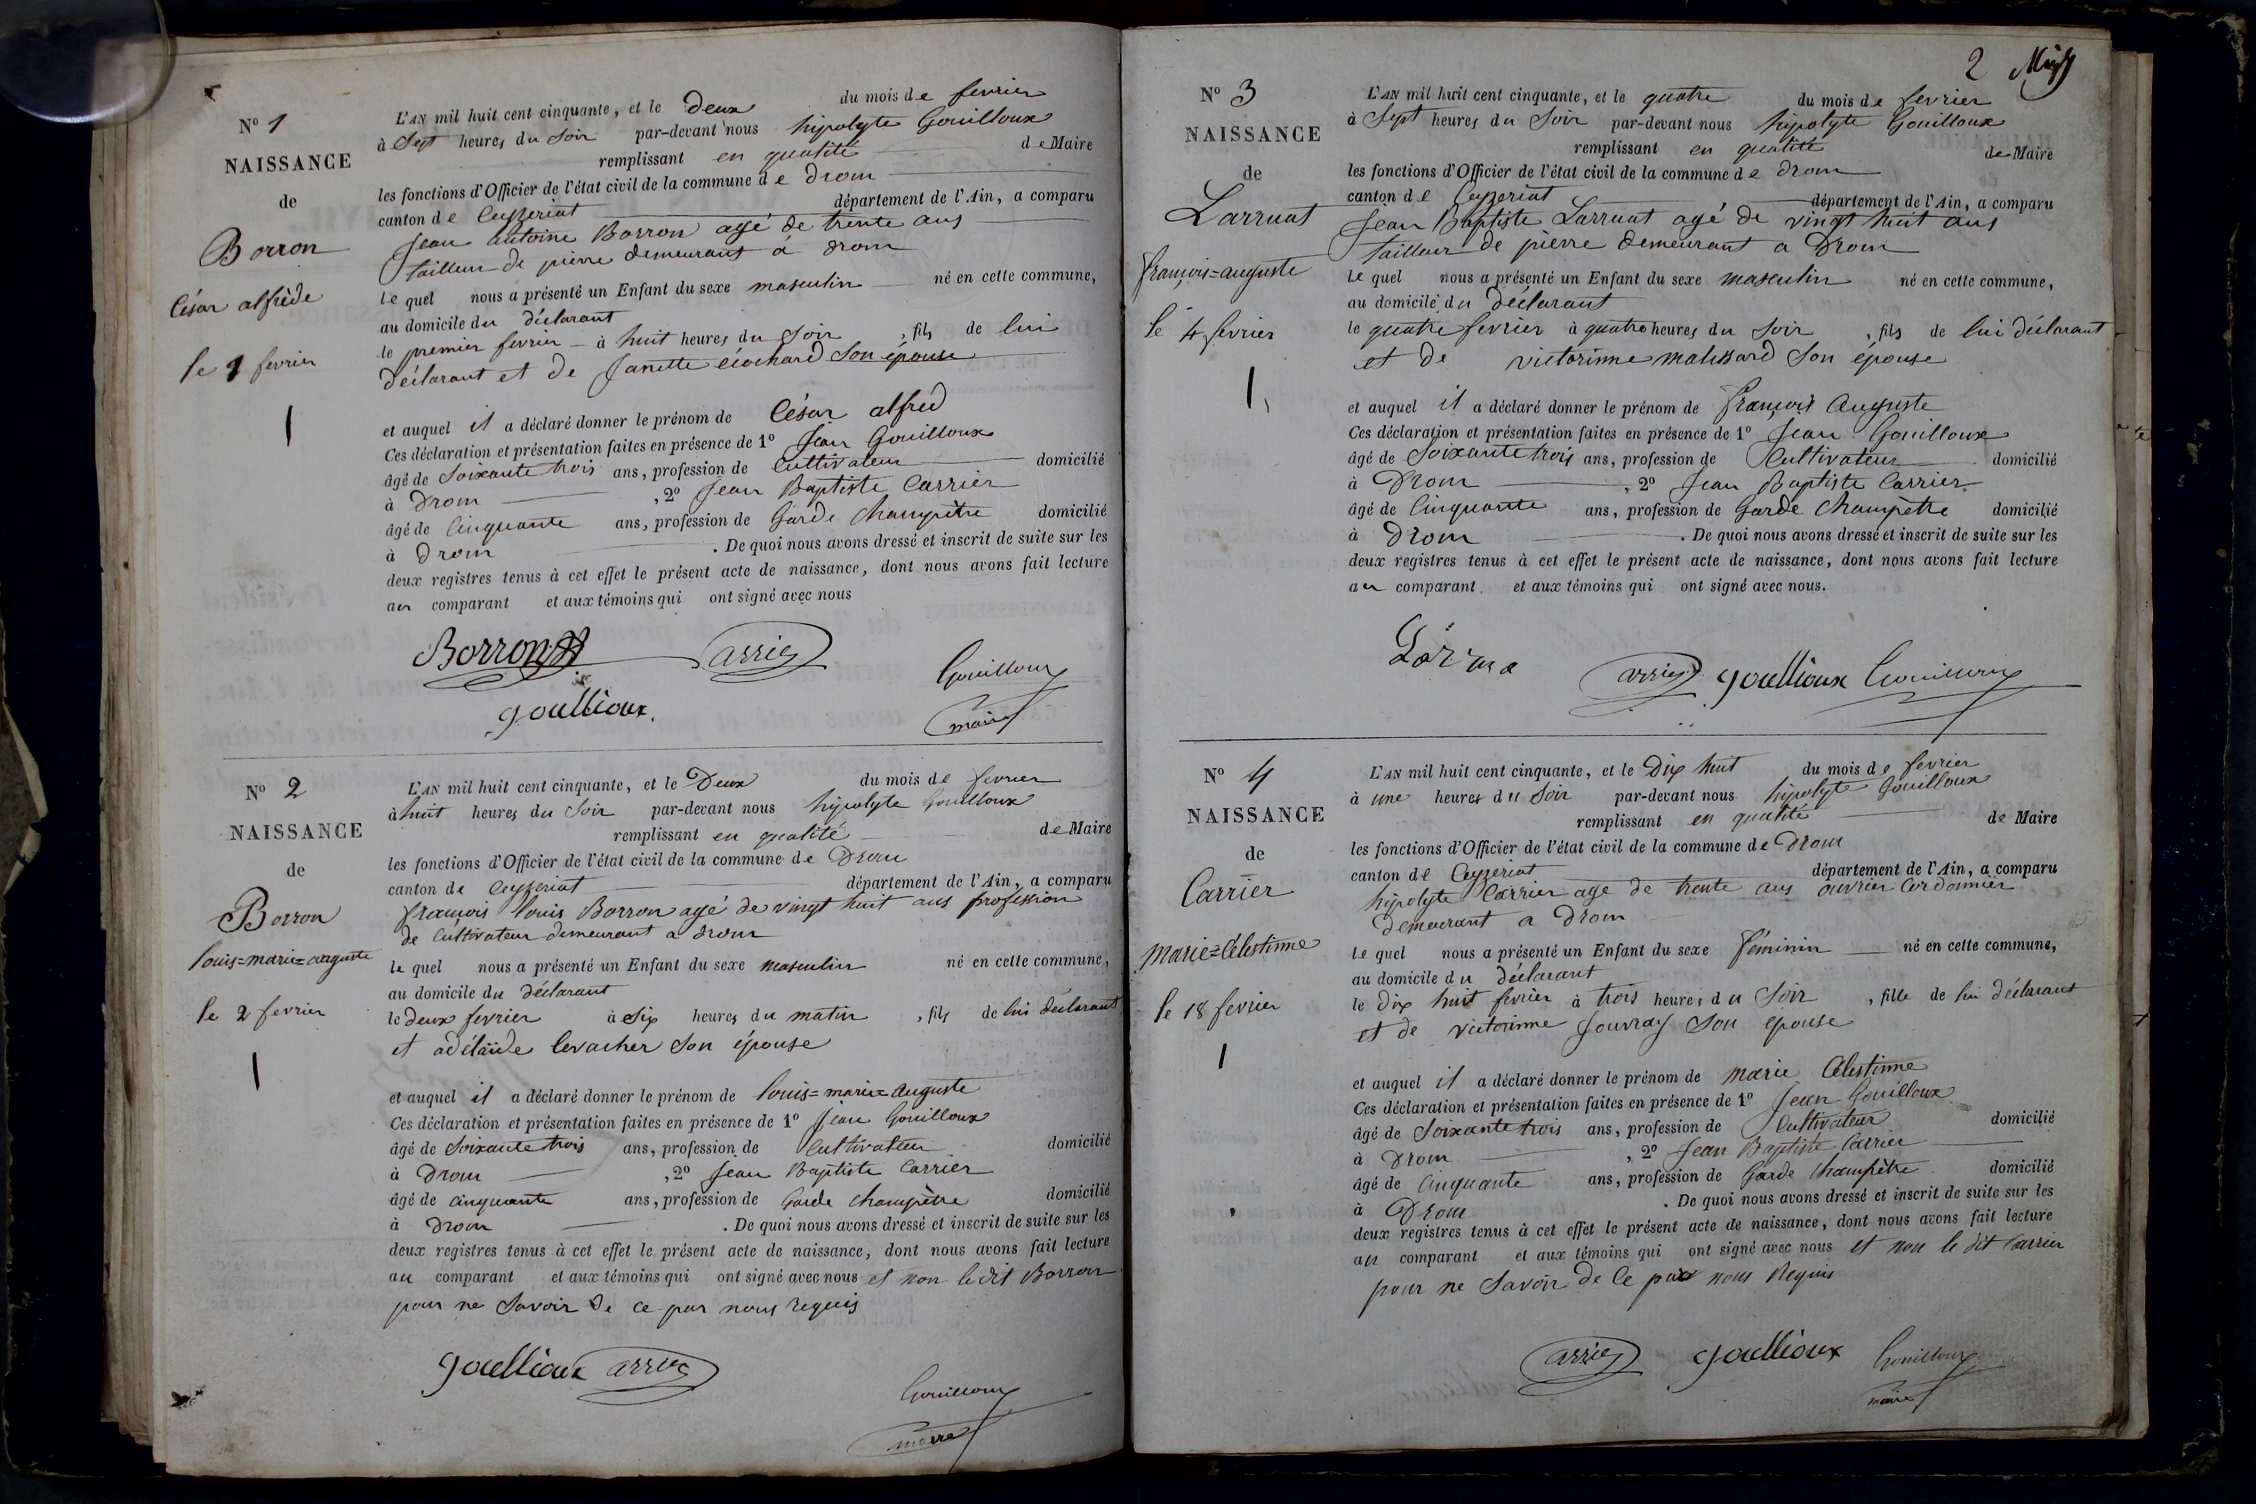 N° 1
NAISSANCE
de
Borron
César alfrède
le 1 fevrier
L'AN mil huit cent cinquante, et le deux du mois de fevrier
à Sept heures du Soir par-devant nous hipolyte Gouilloux
remplissant en qualité de Maire
les fonctions d'Officier de l'état civil de la commune de Drom
canton de Ceyzeriat département de l'Ain, a comparu
Jean antoine Borron agé de trente ans
tailleur de pierre demeurant à Drom
le quel nous a présenté un Enfant du sexe masculin né en cette commune,
au domicile du déclarant
le premier fevrier à huit heures du Soir, fils de lui
déclarant et de Janette écochard Son épouse
et auquel il a déclaré donner le prénom de César alfred
Ces déclaration et présentation faites en présence de 1° Jean Gouilloux
âgé de Soixante trois ans, profession de Cultivateur domicilié
à Drom, 2° Jean Baptiste Carrier
âgé de Cinquante ans, profession de Garde Champètre domicilié
à Drom. De quoi nous avons dressé et inscrit de suite sur les
deux registres tenus à cet effet le présent acte de naissance, dont nous avons fait lecture
au comparant et aux témoins qui ont signé avec nous
Borron arrier Gouilloux
goullioux maire
N° 2
NAISSANCE
de
Borron
louis=marie=auguste
le 2 fevrier
L'AN mil huit cent cinquante, et le Deux du mois de fevrier
à huit heures du Soir par-devant nous hipolyte Gouilloux
remplissant en qualité de Maire
les fonctions d'Officier de l'état civil de la commune de Drom
canton de Ceyzeriat département de l'Ain, a comparu
françois louis Borron agé de vingt huit ans profession
de Cultivateur demeurant a Drom
le quel nous a présenté un Enfant du sexe masculin né en cette commune,
au domicile du déclarant
le deux fevrier à Six heures du matin, fils de lui déclarant
et adélaïde levacher Son épouse
et auquel il a déclaré donner le prénom de louis=marie=Auguste
Ces déclaration et présentation faites en présence de 1° Jean Gouilloux
âgé de Soixante trois ans, profession de Cultivateur domicilié
à Drom, 2° Jean Baptiste Carrier
âgé de Cinquante ans, profession de Garde Champètre domicilié
à Drom. De quoi nous avons dressé et inscrit de suite sur les
deux registres tenus à cet effet le présent acte de naissance, dont nous avons fait lecture
au comparant et aux témoins qui ont signé avec nous et non le dit Borron
pour ne Savoir de ce par nous requis
goullioux arrier Gouilloux
maire
2
N° 3
NAISSANCE
de
Larruat
françois=auguste
le 4 fevrier
L'AN mil huit cent cinquante, et le quatre du mois de fevrier
à Sept heures du Soir par-devant nous hipolyte Gouilloux
remplissant en qualité de Maire
les fonctions d'Officier de l'état civil de la commune de Drom
canton de Ceyzeriat département de l'Ain, a comparu
Jean Baptiste Larruat agé de vingt huit ans
tailleur de pierre demeurant a Drom
le quel nous a présenté un Enfant du sexe masculin né en cette commune,
au domicile du déclarant
le quatre fevrier à quatre heures du Soir, fils de lui déclarant
et de victorinne malissard Son épouse
et auquel il a déclaré donner le prénom de françois Auguste
Ces déclaration et présentation faites en présence de 1° Jean Gouilloux
âgé de Soixante trois ans, profession de Cultivateur domicilié
à Drom, 2° Jean Baptiste Carrier
âgé de Cinquante ans, profession de Garde Champètre domicilié
à Drom. De quoi nous avons dressé et inscrit de suite sur les
deux registres tenus à cet effet le présent acte de naissance, dont nous avons fait lecture
au comparant et aux témoins qui ont signé avec nous.
arrier goullioux Gouilloux
N° 4
NAISSANCE
de
Carrier
marie=Célestinne
le 18 fevrier
L'AN mil huit cent cinquante, et le Dix huit du mois de fevrier
à une heures du Soir par-devant nous hipolyte Gouilloux
remplissant en qualité de Maire
les fonctions d'Officier de l'état civil de la commune de Drom
canton de Ceyzeriat département de l'Ain, a comparu
hipolyte Carrier age de trente ans ouvrier Cordonnier
Demeurant a Drom
le quel nous a présenté un Enfant du sexe féminin né en cette commune,
au domicile du déclarant
le Dix huit fevrier à trois heures du Soir, fille de lui déclarant
et de victorinne Jouvray Son épouse
et auquel il a déclaré donner le prénom de marie Célestinne
Ces déclaration et présentation faites en présence de 1° Jean Gouilloux
âgé de Soixante trois ans, profession de Cultivateur domicilié
à Drom, 2° Jean Baptiste Carrier
âgé de Cinquante ans, profession de Garde Champètre domicilié
à Drom. De quoi nous avons dressé et inscrit de suite sur les
deux registres tenus à cet effet le présent acte de naissance, dont nous avons fait lecture
au comparant et aux témoins qui ont signé avec nous et non le dit Carrier
pour ne Savoir de Ce par nous Requis
arrier goullioux Gouilloux
maire